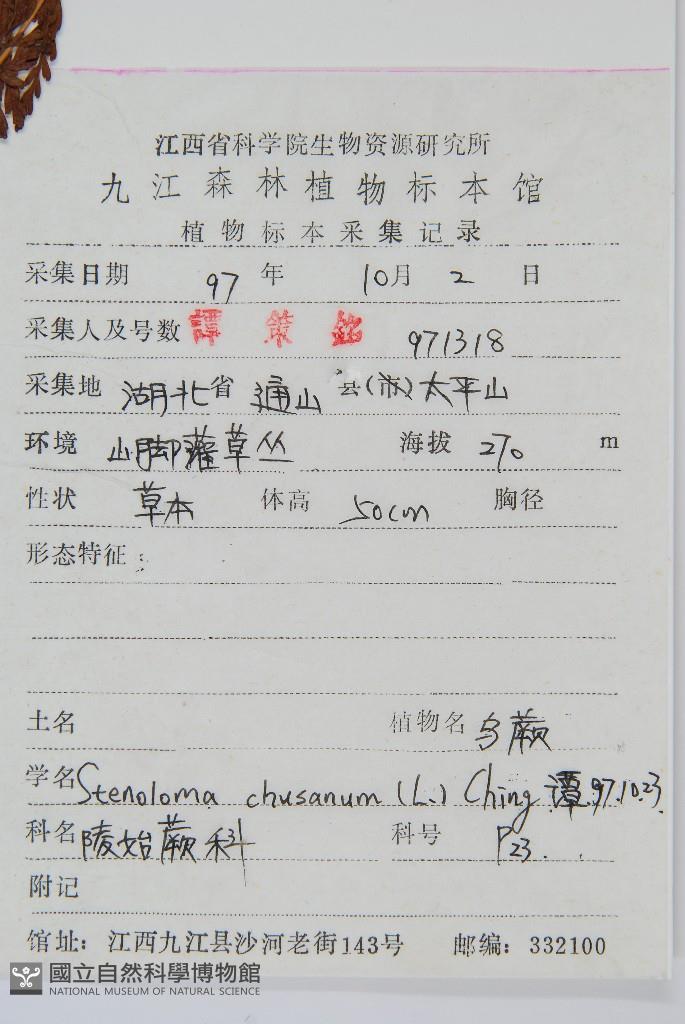 江西省科学院生物资源研究所
九江森林植物标本馆
植物标本采集记录
采集日期 97 年 10月 2 日
采集人及号数 譚策銘 971318
采集地 湖北省 通山 县(市) 太平山
环境 山脚灌草丛 海拔 270 m
性状 草本 体高 50cm 胸径
形态特征:
土名 植物名 乌蕨
学名 Stenoloma chusanum (L.) Ching 譚 97.10.23
科名 陵始蕨科 科号 P23.
附记
馆址: 江西九江县沙河老街143号 邮编: 332100
國立自然科學博物館
NATIONAL MUSEUM OF NATURAL SCIENCE